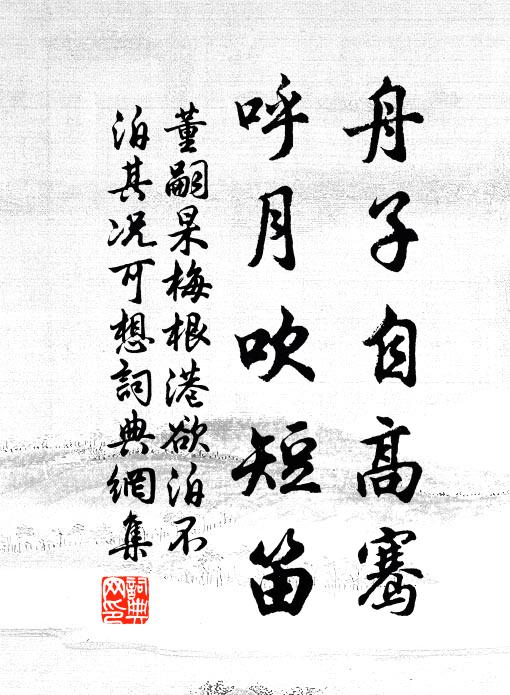 舟子自高騫
呼月吹短笛
董嗣杲梅根港欲泊不
泊其况可想詞典網集
詞典网印